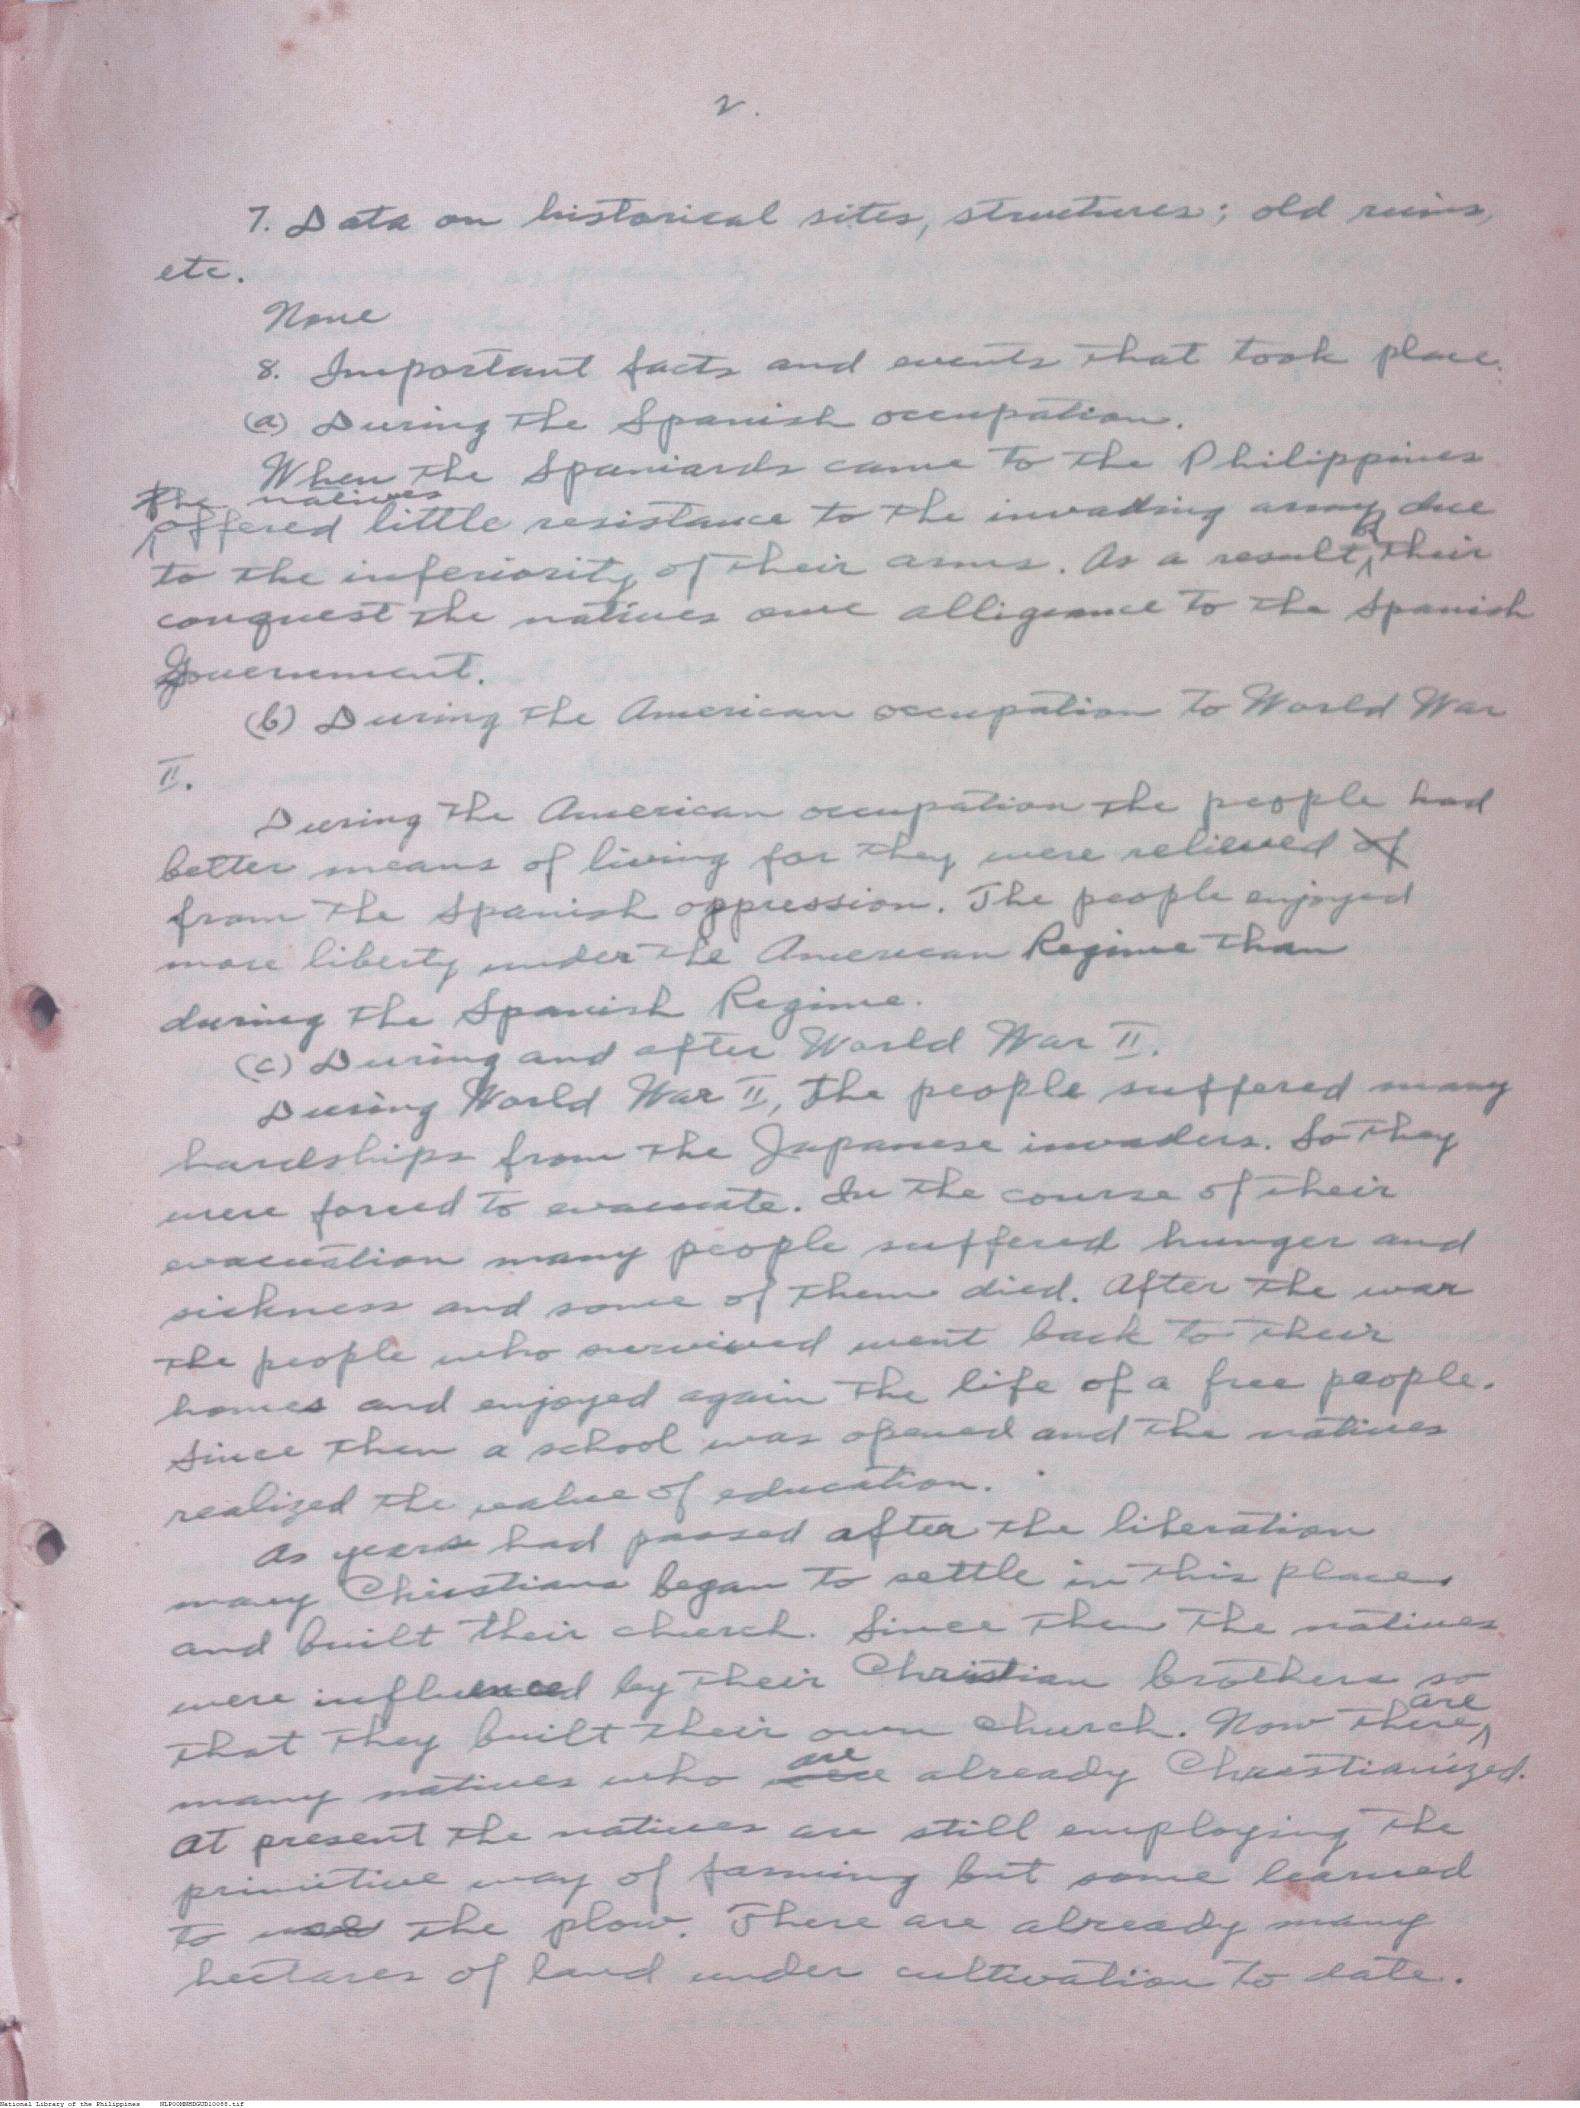 2.
7. Data on historical sites, structures; old ruins,
etc.
None
8. Important facts and events that took place.
(a) During the Spanish occupation.
When the Spaniards came to the Philippines
the natives
offered little resistance to the invading army due
to the inferiority of their arms. As a result of their
conquest the natives owe alligeance to the Spanish
Government.
(b) During the American occupation to World War
II.
During the American occupation the people had
better means of living for they were relieved of
from the Spanish oppression. The people enjoyed
more liberty under the American Regime than
during the Spanish Regime.
(c) During and after World War II.
During World War II, the people suffered many
hardships from the Japanese invaders. So they
were forced to evacuate. In the course of their
evacuation many people suffered hunger and
sickness and some of them died. After the war
the people who survived went back to their
homes and enjoyed again the life of a free people.
Since then a school was opened and the natives
realized the value of education.
As years had passed after the liberation
many Christians began to settle in this place
and built their church. Since then the natives
were influenced by their Christian brothers so
that they built their own church. Now there are
many natives who are already Christianized.
At present the natives are still employing the
primitive way of farming but some learned
to use the plow. There are already many
hectares of land under cultivation to date.
National Library of the Philippines NLP00MNMDGUD10088.tif